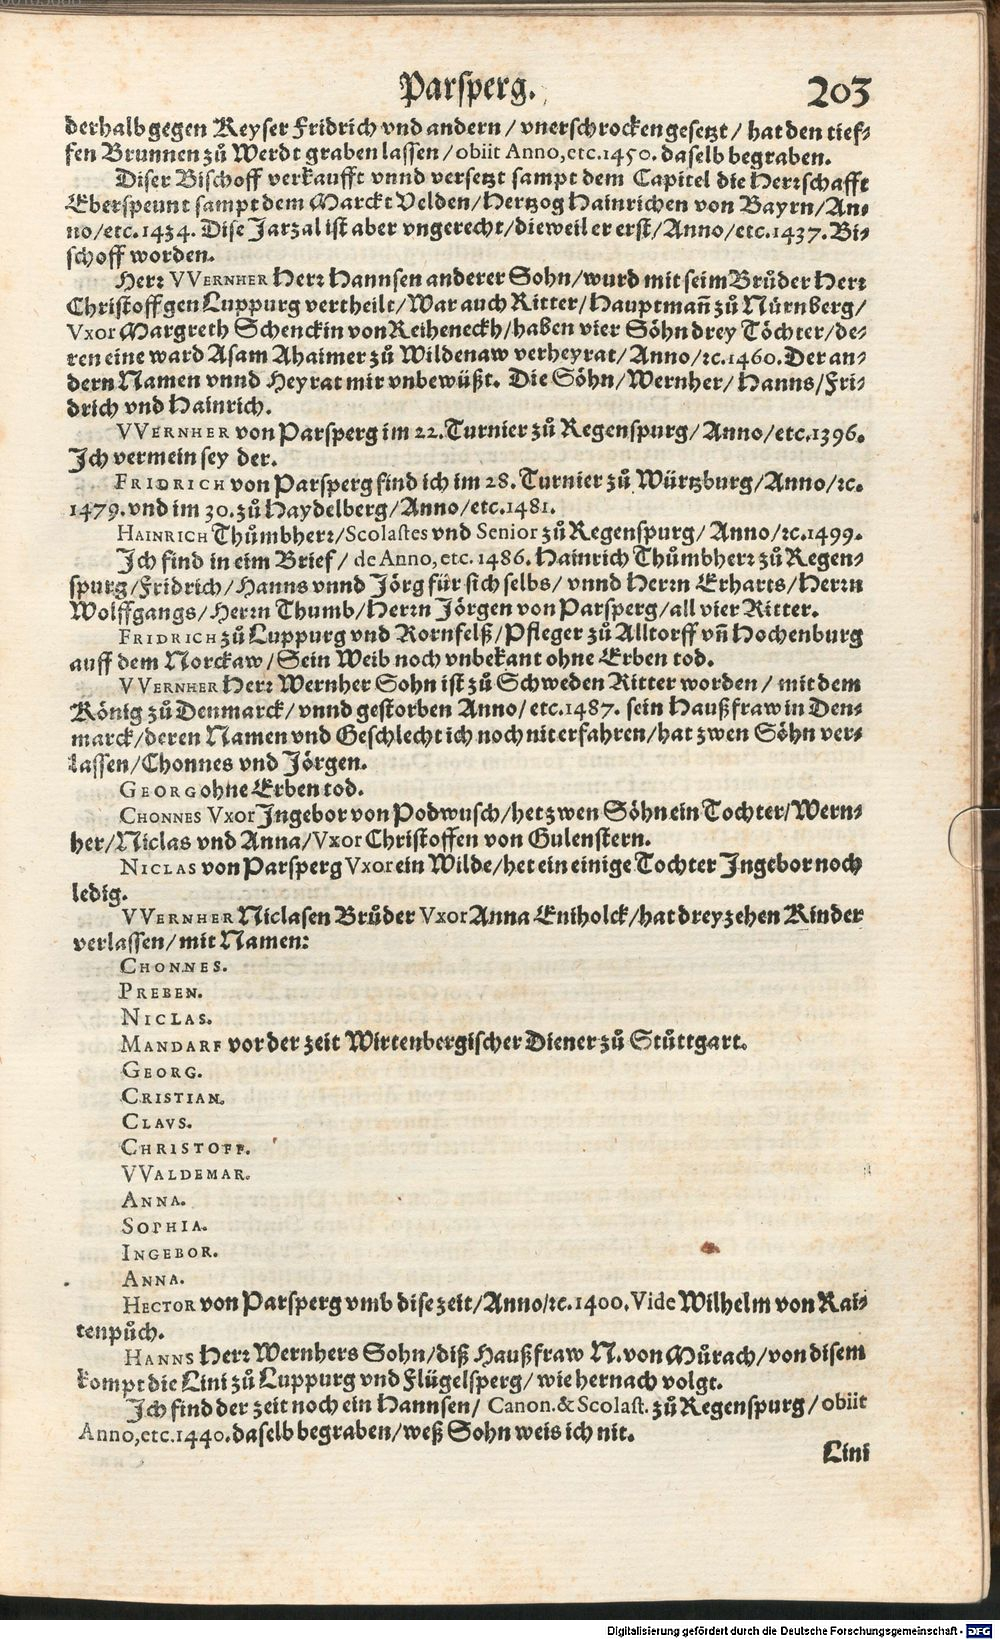 Parsperg. 203
derhalb gegen Keyser Fridrich vnd andern / vnerschrocken gesetzt / hat den tief-
fen Brunnen zů Werdt graben lassen / obiit Anno, etc. 1450. daselb begraben.
Diser Bischoff verkaufft vnnd versetzt sampt dem Capitel die Herrschafft
Eberspeunt sampt dem Marckt Velden / Hertzog Hainrichen von Bayrn / An-
no / etc. 1434. Dise Jarzal ist aber vngerecht / dieweil er erst / Anno / etc. 1437. Bi-
schoff worden.
Herr VVERNHER Herr Hannsen anderer Sohn / wurd mit seim Brůder Herr
Christoff gen Luppurg vertheilt / War auch Ritter / Hauptmañ zů Nůrnberg /
Vxor Margreth Schenckin von Reiheneckh / haben vier Söhn drey Töchter / de-
ren eine ward Asam Ahaimer zů Wildenaw verheyrat / Anno / ꝛc. 1460. Der an-
dern Namen vnnd Heyrat mir vnbewüßt. Die Söhn / Wernher / Hanns / Fri-
drich vnd Hainrich.
VVERNHER von Parsperg im 22. Turnier zů Regenspurg / Anno / etc. 1396.
Ich vermein sey der.
FRIDRICH von Parsperg find ich im 28. Turnier zů Würtzburg / Anno / ꝛc.
1479. vnd im 30. zů Haydelberg / Anno / etc. 1481.
HAINRICH Thůmbherr / Scolastes vnd Senior zů Regenspurg / Anno / ꝛc. 1499.
Ich find in eim Brief / de Anno, etc. 1486. Hainrich Thůmbherr zů Regen-
spurg / Fridrich / Hanns vnnd Jörg für sich selbs / vnnd Herrn Erharts / Herrn
Wolffgangs / Herrn Thumb / Herrn Jörgen von Parsperg / all vier Ritter.
FRIDRICH zů Luppurg vnd Kornfelß / Pfleger zů Alltorff vñ Hochenburg
auff dem Norckaw / Sein Weib noch vnbekant ohne Erben tod.
VVERNHER Herr Wernher Sohn ist zů Schweden Ritter worden / mit dem
König zů Denmarck / vnnd gestorben Anno / etc. 1487. sein Haußfraw in Den-
marck / deren Namen vnd Geschlecht ich noch nit erfahren / hat zwen Söhn ver-
lassen / Chonnes vnd Jörgen.
GEORG ohne Erben tod.
CHONNES Vxor Ingebor von Podwusch / het zwen Söhn ein Tochter / Wern-
her / Niclas vnd Anna / Vxor Christoffen von Gulenstern.
NICLAS von Parsperg Vxor ein Wilde / het ein einige Tochter Ingebor noch
ledig.
VVERNHER Niclasen Brůder Vxor Anna Eniholck / hat dreyzehen Kinder
verlassen / mit Namen:
CHONNES.
PREBEN.
NICLAS.
MANDARF vor der zeit Wirtenbergischer Diener zů Stůttgart.
GEORG.
CRISTIAN.
CLAVS.
CHRISTOFF.
VVALDEMAR.
ANNA.
SOPHIA.
INGEBOR.
ANNA.
HECTOR von Parsperg vmb dise zeit / Anno / ꝛc. 1400. Vide Wilhelm von Rai-
tenpůch.
HANNS Herr Wernhers Sohn / diß Haußfraw N. von Můrach / von disem
kompt die Lini zů Luppurg vnd Flügelsperg / wie hernach volgt.
Ich find der zeit noch ein Hannsen / Canon. & Scolast. zů Regenspurg / obiit
Anno, etc. 1440. daselb begraben / weß Sohn weis ich nit.
Lini
Digitalisierung gefördert durch die Deutsche Forschungsgemeinschaft - DFG